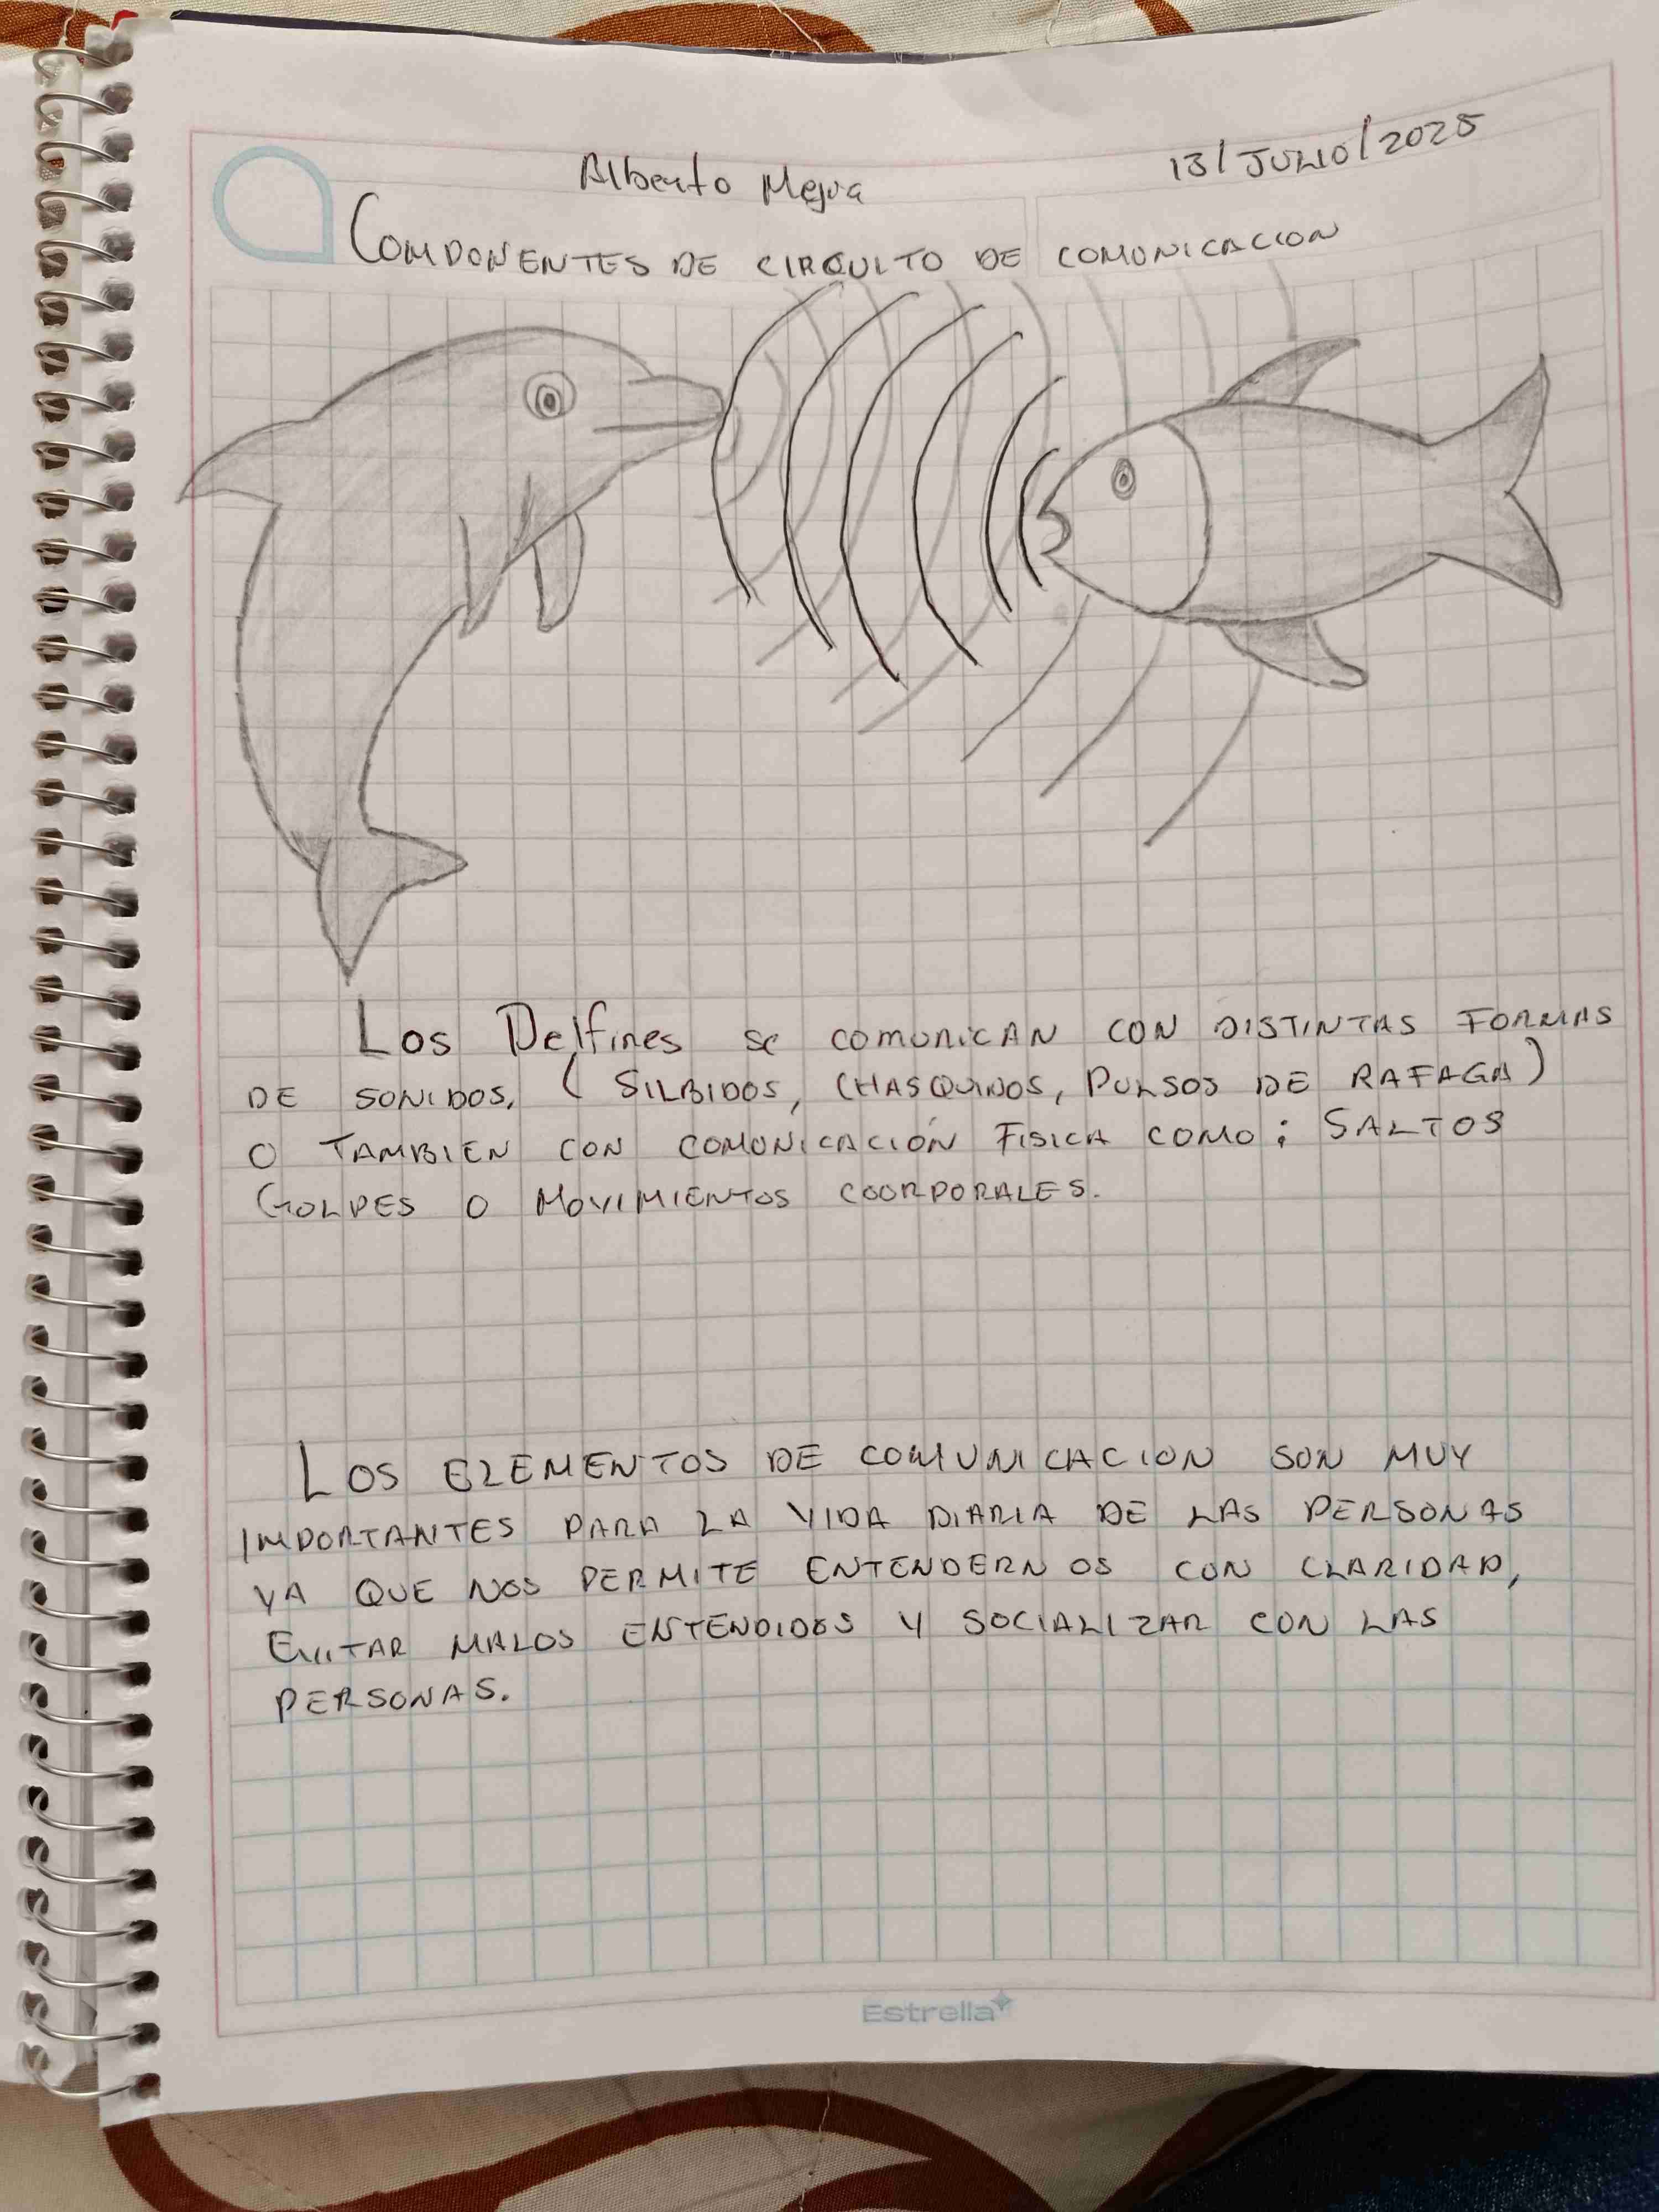 Alberto Mejia
13/JULIO/2025
COMPONENTES DE CIRQUITO DE COMUNICACION
Los Delfines se comunican CON DISTINTAS FORMAS
DE SONIDOS. ( SILBIDOS, CHASQUIDOS, PULSOS DE RAFAGA)
O TAMBIEN CON COMUNICACIÓN FISICA COMO: SALTOS
GOLPES O MOVIMIENTOS COORPORALES.
LOS ELEMENTOS DE COMUNICACION SON MUY
IMPORTANTES PARA LA VIDA DIARIA DE LAS PERSONAS
YA QUE NOS PERMITE ENTENDERNOS CON CLARIDAD,
EVITAR MALOS ENTENDIDOS Y SOCIALIZAR CON LAS
PERSONAS.
Estrella